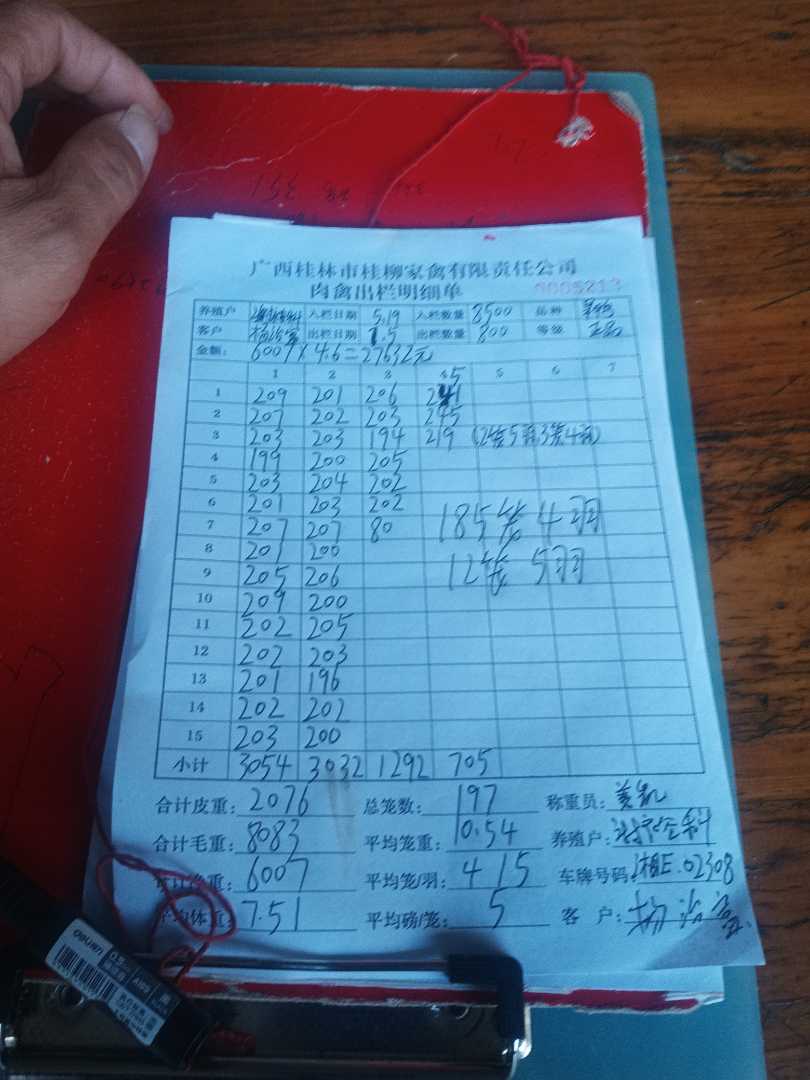 广西桂林市桂柳家禽有限责任公司
肉禽出栏明细单 0005213
养殖户 入栏日期 5.19 入栏数量 8500 品种
客户 杨治富 出栏日期 7.5 出栏数量 800 等级 正品
金额: 6007×4.6=27632元
1 2 3 4 5 5 6 7
1 209 201 206 241
2 207 202 203 245
3 203 203 194 219 (2笼5羽3笼4羽)
4 199 200 205
5 203 204 202
6 201 203 202
7 207 207 80 185笼4羽
8 201 200
9 205 206 12笼5羽
10 209 200
11 202 205
12 202 203
13 201 196
14 202 202
15 203 200
小计 3054 3032 1292 705
合计皮重: 2076 总笼数: 197 称重员:
合计毛重: 8083 平均笼重: 10.54 养殖户:
合计净重: 6007 平均笼/羽: 4 15 车牌号码: 湘E.02308
平均体重: 7.51 平均磅/笼: 5 客 户: 杨治富
deli